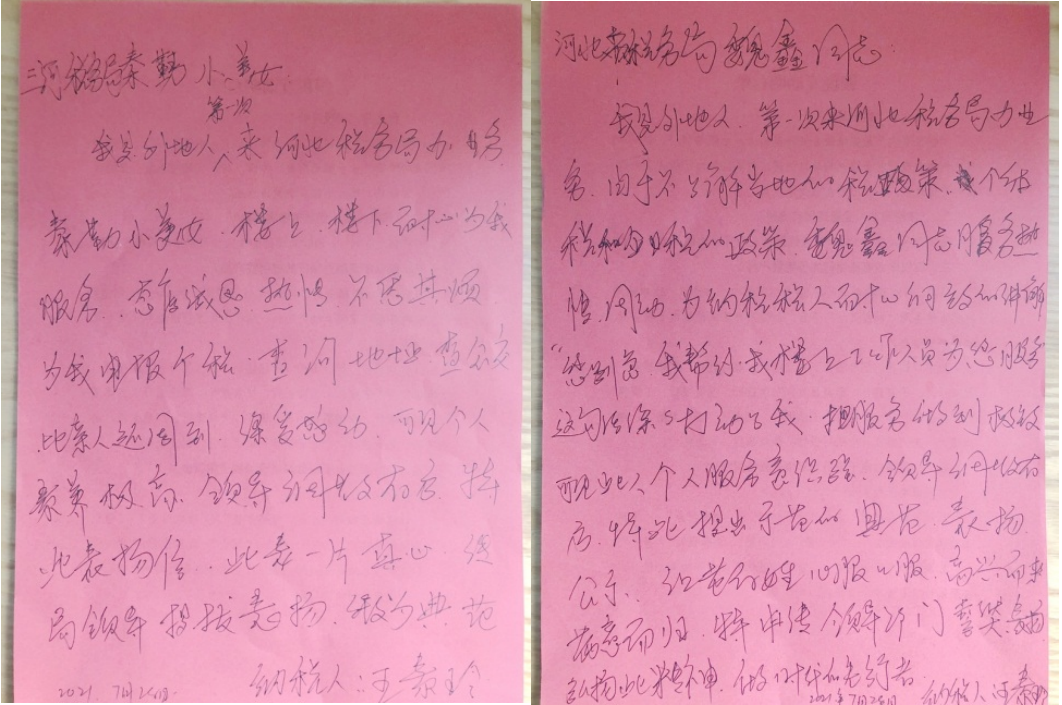 三河税务局秦勤小美女:
第一次
我是外地人,来河北税务局办业务.
秦勤小美女.楼上.楼下.耐心为我
服务.态度诚恳.热情.不厌其烦.
为我申报个税.查询地址.查
比亲人还周到.深受感动.可见个人
素养极高.领导调教有方.特
此表扬信.此表一片真心.望
局领导提拔表扬.做为典范
纳税人:王
2021.7月28日.
河北省税务局魏鑫同志:
我是外地人.第一次来河北税务局办业
务.由于不了解当地的税政策.个体
税和个人税的政策.魏鑫同志服务热
情.周到.为纳税人耐心细致的讲解
"您别急.我帮你.我楼上工作人员为您服务"
这句话深深打动了我.把服务做到极致
可见此人个人服务意识强.领导调教有
方.特此提出示范的典范.表扬
公示.让老百姓心服口服.高兴而来
满意而归.特申请领导部门嘉奖.表扬
弘扬此精神.做时代的先行者
2021年7月28日 纳税人王